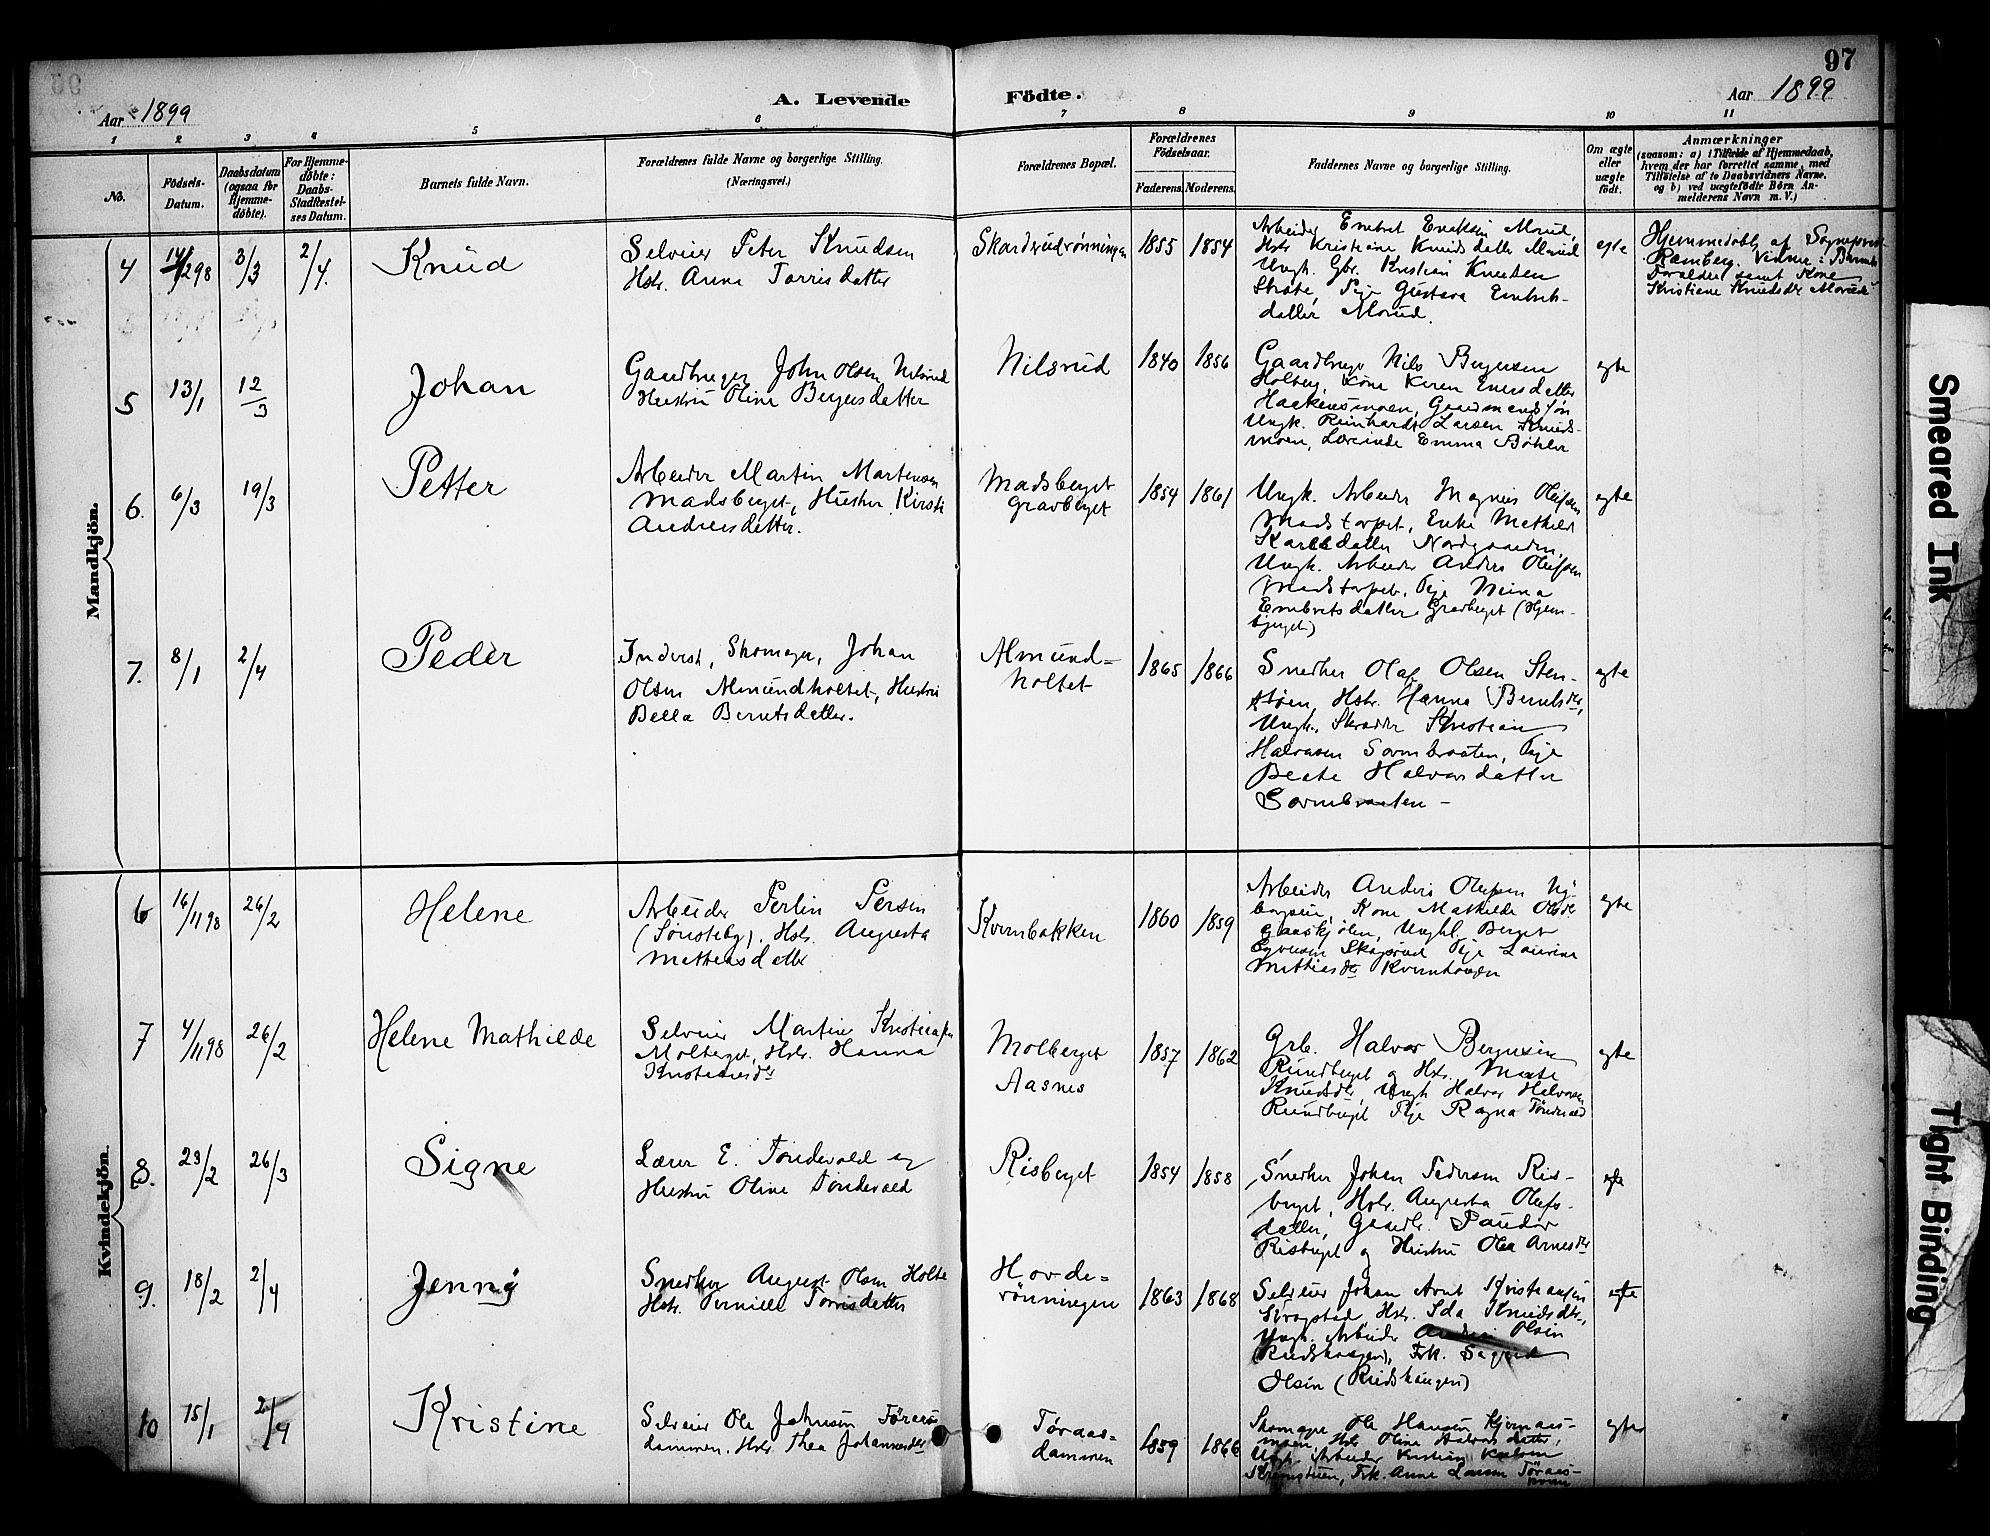 97
Aar 1899
A. Levende Födte.
Aar 1899
1 2 3 4 5 6 7 8 9 10 11
No.
Födsels-Datum.
Daabsdatum (ogsaa for Hjemme-döbte).
For Hjemme-döbte: Daabs-Stadfæstel-ses Datum.
Barnets fulde Navn.
Forældrenes fulde Navne og borgerlige Stilling.
(Næringsvei.)
Forældrenes Bopæl.
Forældrenes Födselsaar.
Faderens. Moderens.
Faddernes Navne og borgerlige Stilling.
Om ægte eller uægte födt.
Anmærkninger
(saasom: a) i Tilfælde af Hjemmedaab, hvem der har forrettet samme, med Tilföielse af to Daabsvidners Navne, og b) ved uægtefödte Börn An-melderens Navn m. V.)
Mandkjön.
4 14/12 98 3/3 2/4. Knud
Selveier Peter Knudsen
Hstr. Anna Torrisdatter
Skardsrudrønningen 1855 1854
Arbeider Embret Eriksen Morud,
Hstr Kristiane Knudsdatter Morud
Ungk. Gbr. Kristian Knudsen
Pige Gustava Embrets-
datter Morud.
egte
Hjemmedøbt af Sogneprest
Ramberg. Vidner: Barnets
Forældre samt Kone
Kristiane Knudsdr Morud
5 13/1 12/3 Johan
Gaardbruger John Olsen Nilsrud
Hustru Oline Bergersdatter
Nilsrud 1840 1856
Gaardbruger Nils Bergersen
Holberg, Kone Karen Enersdatter
Haakensmoen, Gaardmandssøn
Ungk. Reinhardt Larsen Knuds-
moen, Lærerinde Emma Bøhler
egte
6. 6/3 19/3 Petter
Arbeider Martin Martinsen
Madsberget, Hustru Kirsti
Andreasdatter.
Madsberget
Gravberget
1854 1861
Ungk. Arbeider Magnus Olufsen
Madstorpet, Enke Mathilde
Karlsdatter Nordgaarden,
Ungk. Arbeider Anders Olufsen
Madstorpet, Pige Mina
Embretsdatter Gravberget (Hjem-
berget)
egte
7. 8/1 2/4 Peder
Inderst, Skomager, Johan
Olsen Almundholtet, Hustru
Bella Berntsdatter.
Almund=
holtet
1865 1866
Snedker Olaf Olsen Sten-
støen, Hstr. Hanna Berntsdr,
Ungk. Skrædder Kristian
Halvorsen Sormbraaten, Pige
Beate Halvorsdatter
Sormbraaten –
egte
Kvindekjön.
6 16/11 98 26/2 Helene
Arbeider Perlin Persen
(Sønsteby), Hstr. Augusta
Mathiasdatter
Kvernbakken 1860 1859
Arbeider Anders Olufsen
Kone Mathilde Olsdr
Gaaskjølen, Ungk. Bernt
Pige Laurine
Mathiasdr Kvernhaugen
egte
7 4/11 98 26/2 Helene Mathilde
Selveier Martin Kristiansen
Molberget, Hstr. Hanna
Kristiansdr
Molberget
Aasnes
1857 1862
Grb. Halvor Bergersen
Rundberget og Hstr. Mate
Knudsdr, Ungk Halvor Halvorsen
Rundberget Pige Ragna Tøndevold
egte
8. 23/2 26/3 Signe
Lærer E. Tøndevold og
Hustru Oline Tøndevold
Risberget 1854 1858
Snedker Johan Pedersen Ris-
berget, Hstr. Augusta Olufs-
datter, Gaardbr. Paudor
Risberget og Hustru Olea Arnesdr
egte
9. 18/2 2/4 Jenny
Snedker August Olsen Holte
Hstr. Pernille Torrisdatter
Hovde=
rønningen
1863 1868
Selveier Johan Arnt Kristiansen
Skrogstad Hstr. Ida Knudsdtr,
Ungk. Arbeider Anders Olsen
(Rudshaugen), Frk. Sigrid
Olsen (Rudshaugen)
egte
10 15/1 2/4 Kristine
Selveier Ole Johnsen Tøraas-
dammen. Hstr Thea Johannesdr
Tøraas=
dammen
1859 1866
Skomager Ole Hansen Kjernaas-
moen, Hstr Oline Halvorsdatter,
Ungk. Arbeider Kristian Karlsen
Frk. Anne Larsen Tøraas-
egte
Smeared Ink
Tight Binding